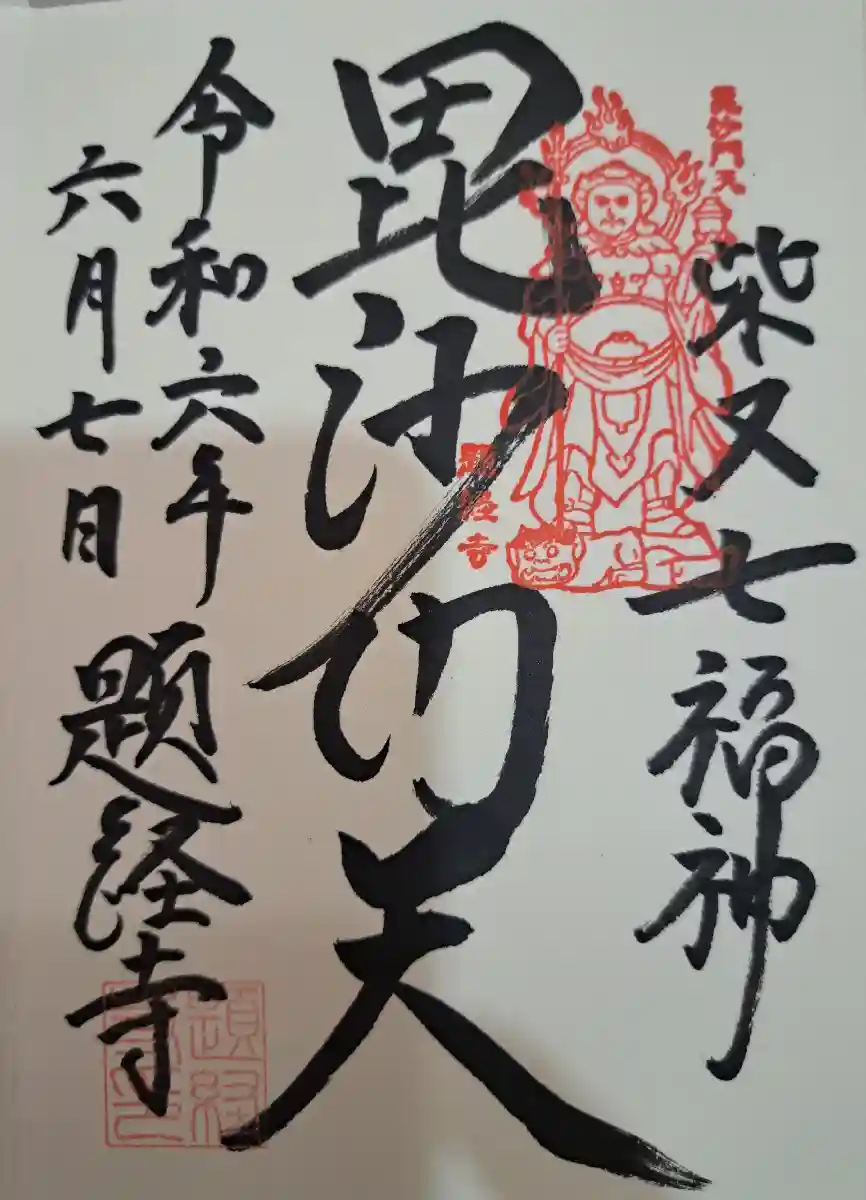 柴又七福神
毘沙門天
毘沙門天
題経寺
令和六年
六月七日
題経寺
題経寺